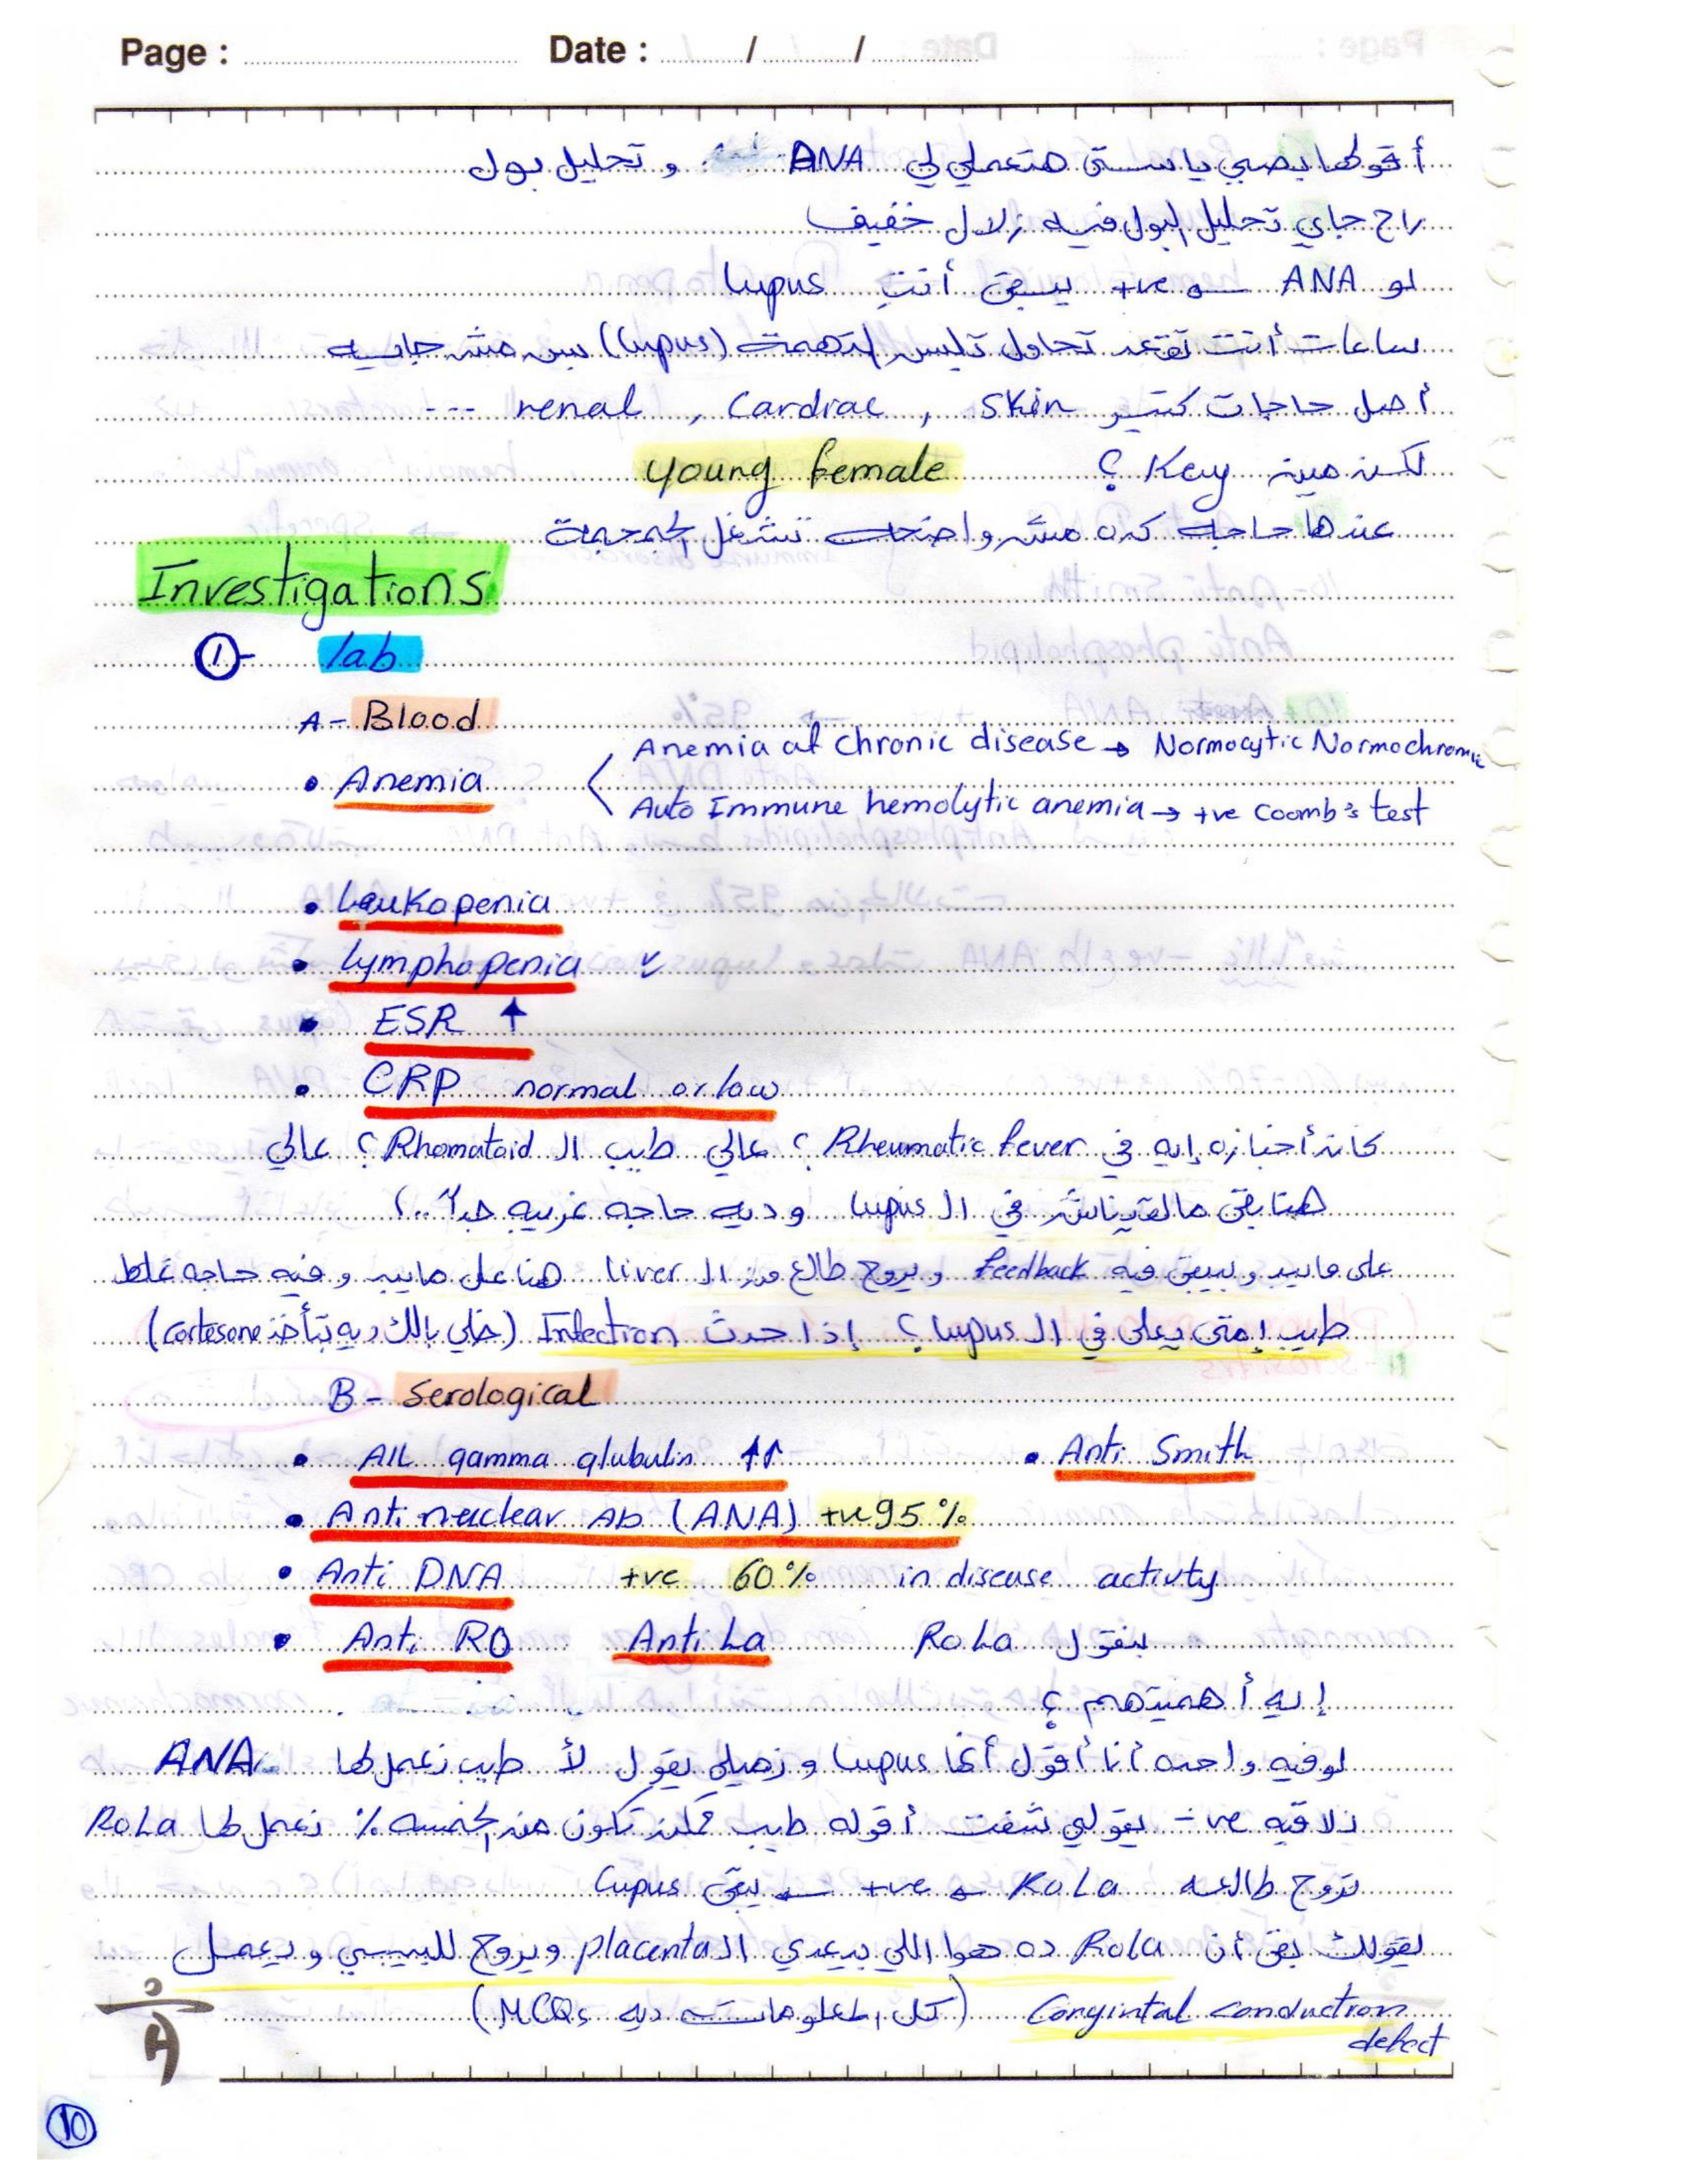 Page : Date : / /
أقولها بصي يا ستي هتعملي لي ANA و تحليل بول
راح جاي تحليل البول فيه زلال خفيف
لو ANA +ve يبقى أنتِ Lupus
ساعات أنت تقعد تحاول تلبس لتهمة (Lupus) بس مش جايه
أصل حاجات كتير skin , Cardiac , renal ---
لكن مين Key ؟ young female
عندها حاجه كده مش واضحه تشغل الجمجمة
Investigations
①- lab
A- Blood
Anemia of chronic disease → Normocytic Normochromic
• Anemia
Auto Immune hemolytic anemia → +ve Coomb's test
• Leukopenia
• Lymphopenia ✓
• ESR ↑
• CRP normal or low
كان أخباره إيه في Rheumatic fever ؟ عالي طيب ال Rhomatoid ؟ عالي
هنا بقى مالقيناش في ال Lupus و ديه حاجه غريبه جداً ..؟
على مايبد و يبقى فيه feedback و يروح طالع من ال liver هنا على مايبد و فيه حاجه غلط
طيب إمتى يعلى في ال Lupus ؟ إذا حدث Infection (خلي بالك ديه بتأخذ cortesone)
B - Serological
• All gamma glubulin ↑↑ • Anti Smith
• Anti nuclear Ab (ANA) +ve 95 %
• Anti DNA +ve 60 % in disease activty
• Anti RO Anti La بنقول RoLa
إيه أهميتهم ؟
لو فيه واحده أنا أقول أنها Lupus و زميلي يقول لأ طيب نعمل لها ANA
نلاقيه -ve يقولي شفت أقوله طيب ممكن تكون من الخمسه % نعمل لها RoLa
تروح طالعه RoLa +ve يبقى Lupus
يقولك بقى أن RoLa ده هوا اللي بيعدي ال placenta و يروح للبيبي و يعمل
Congintal conduction (كل المعلومات ديه MCQs)
defect
10